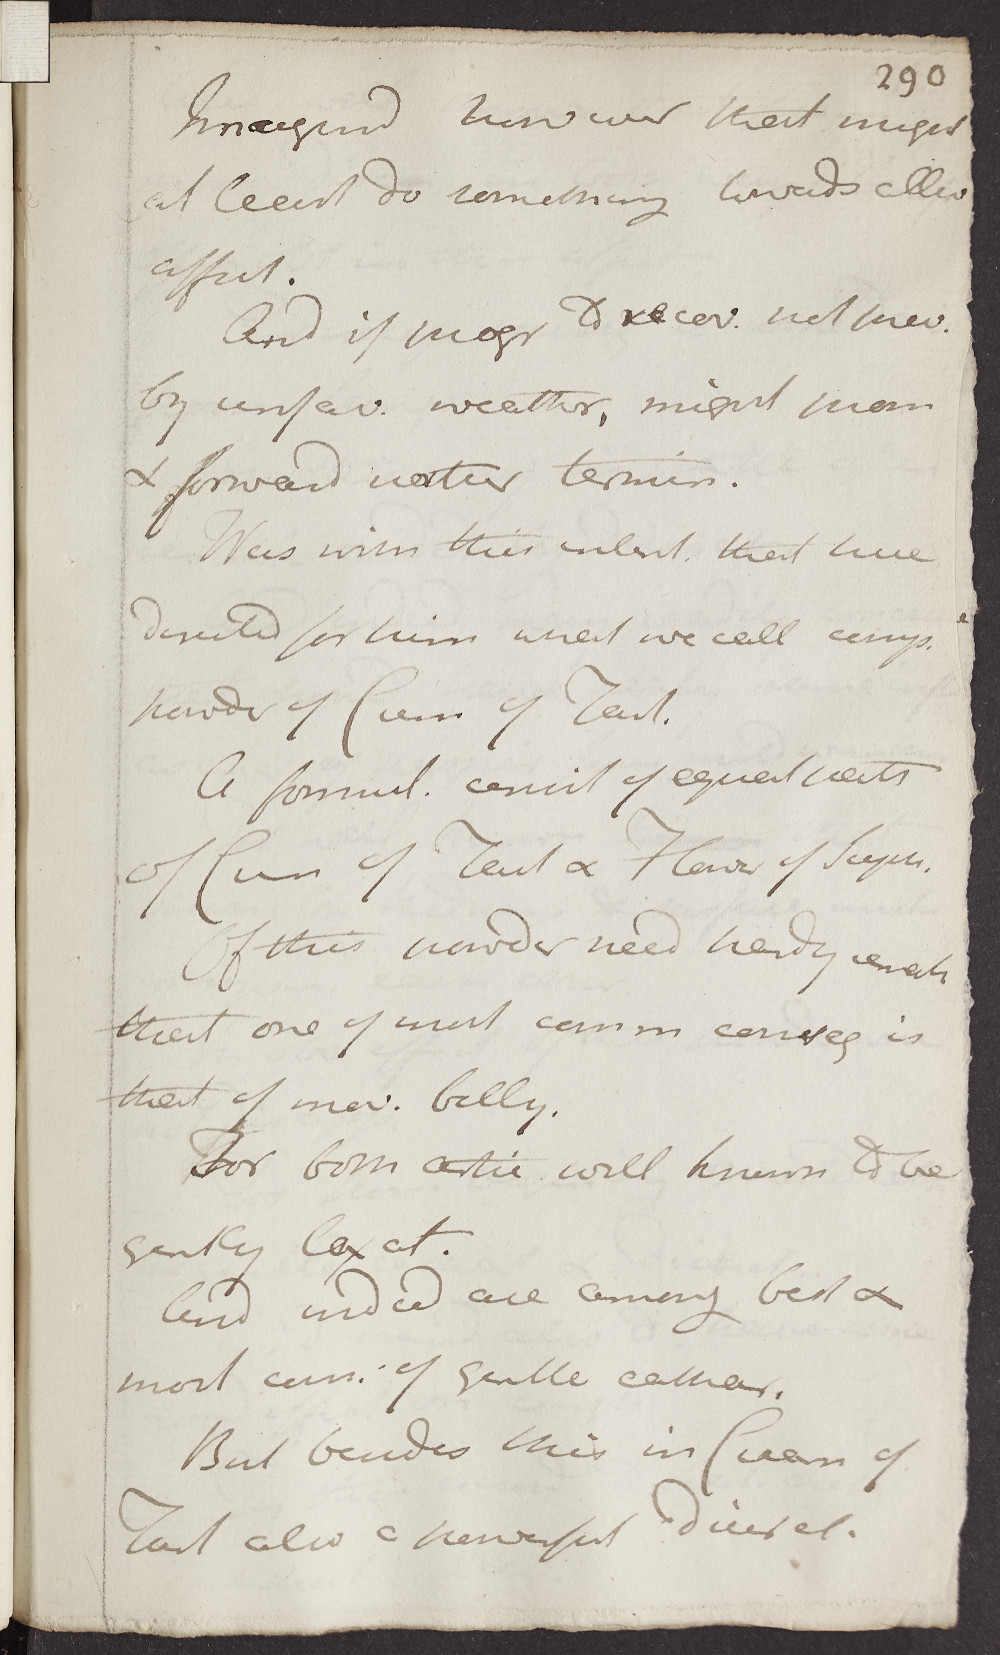 290
Imagind however that might
at least do something towards allev
affect.
And if progr to recov. not prev.
by unfav. weather, might prom
& forward nather termin.
Was with this intent. that have
directed for him what we call comp.
powder of Cream of Tart.
A formul. consist of equal parts
of Crem of Tart & Flower of Sulph.
Of this powder need hardly
that one of most comm conseq is
that of mov. belly.
For both artic well known to be
gently laxat.
And indeed are among best &
most com. of gentle cathar.
But besides this in Cream of
Tart also a powerful diuret.